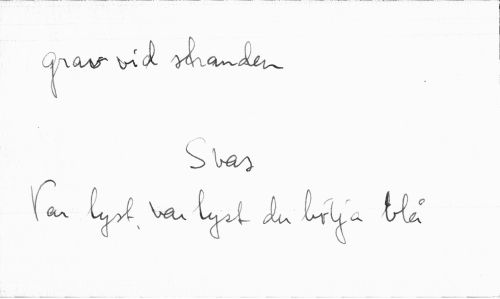 grav vid stranden
Svas
Var lyst, var lyst du bölja blå